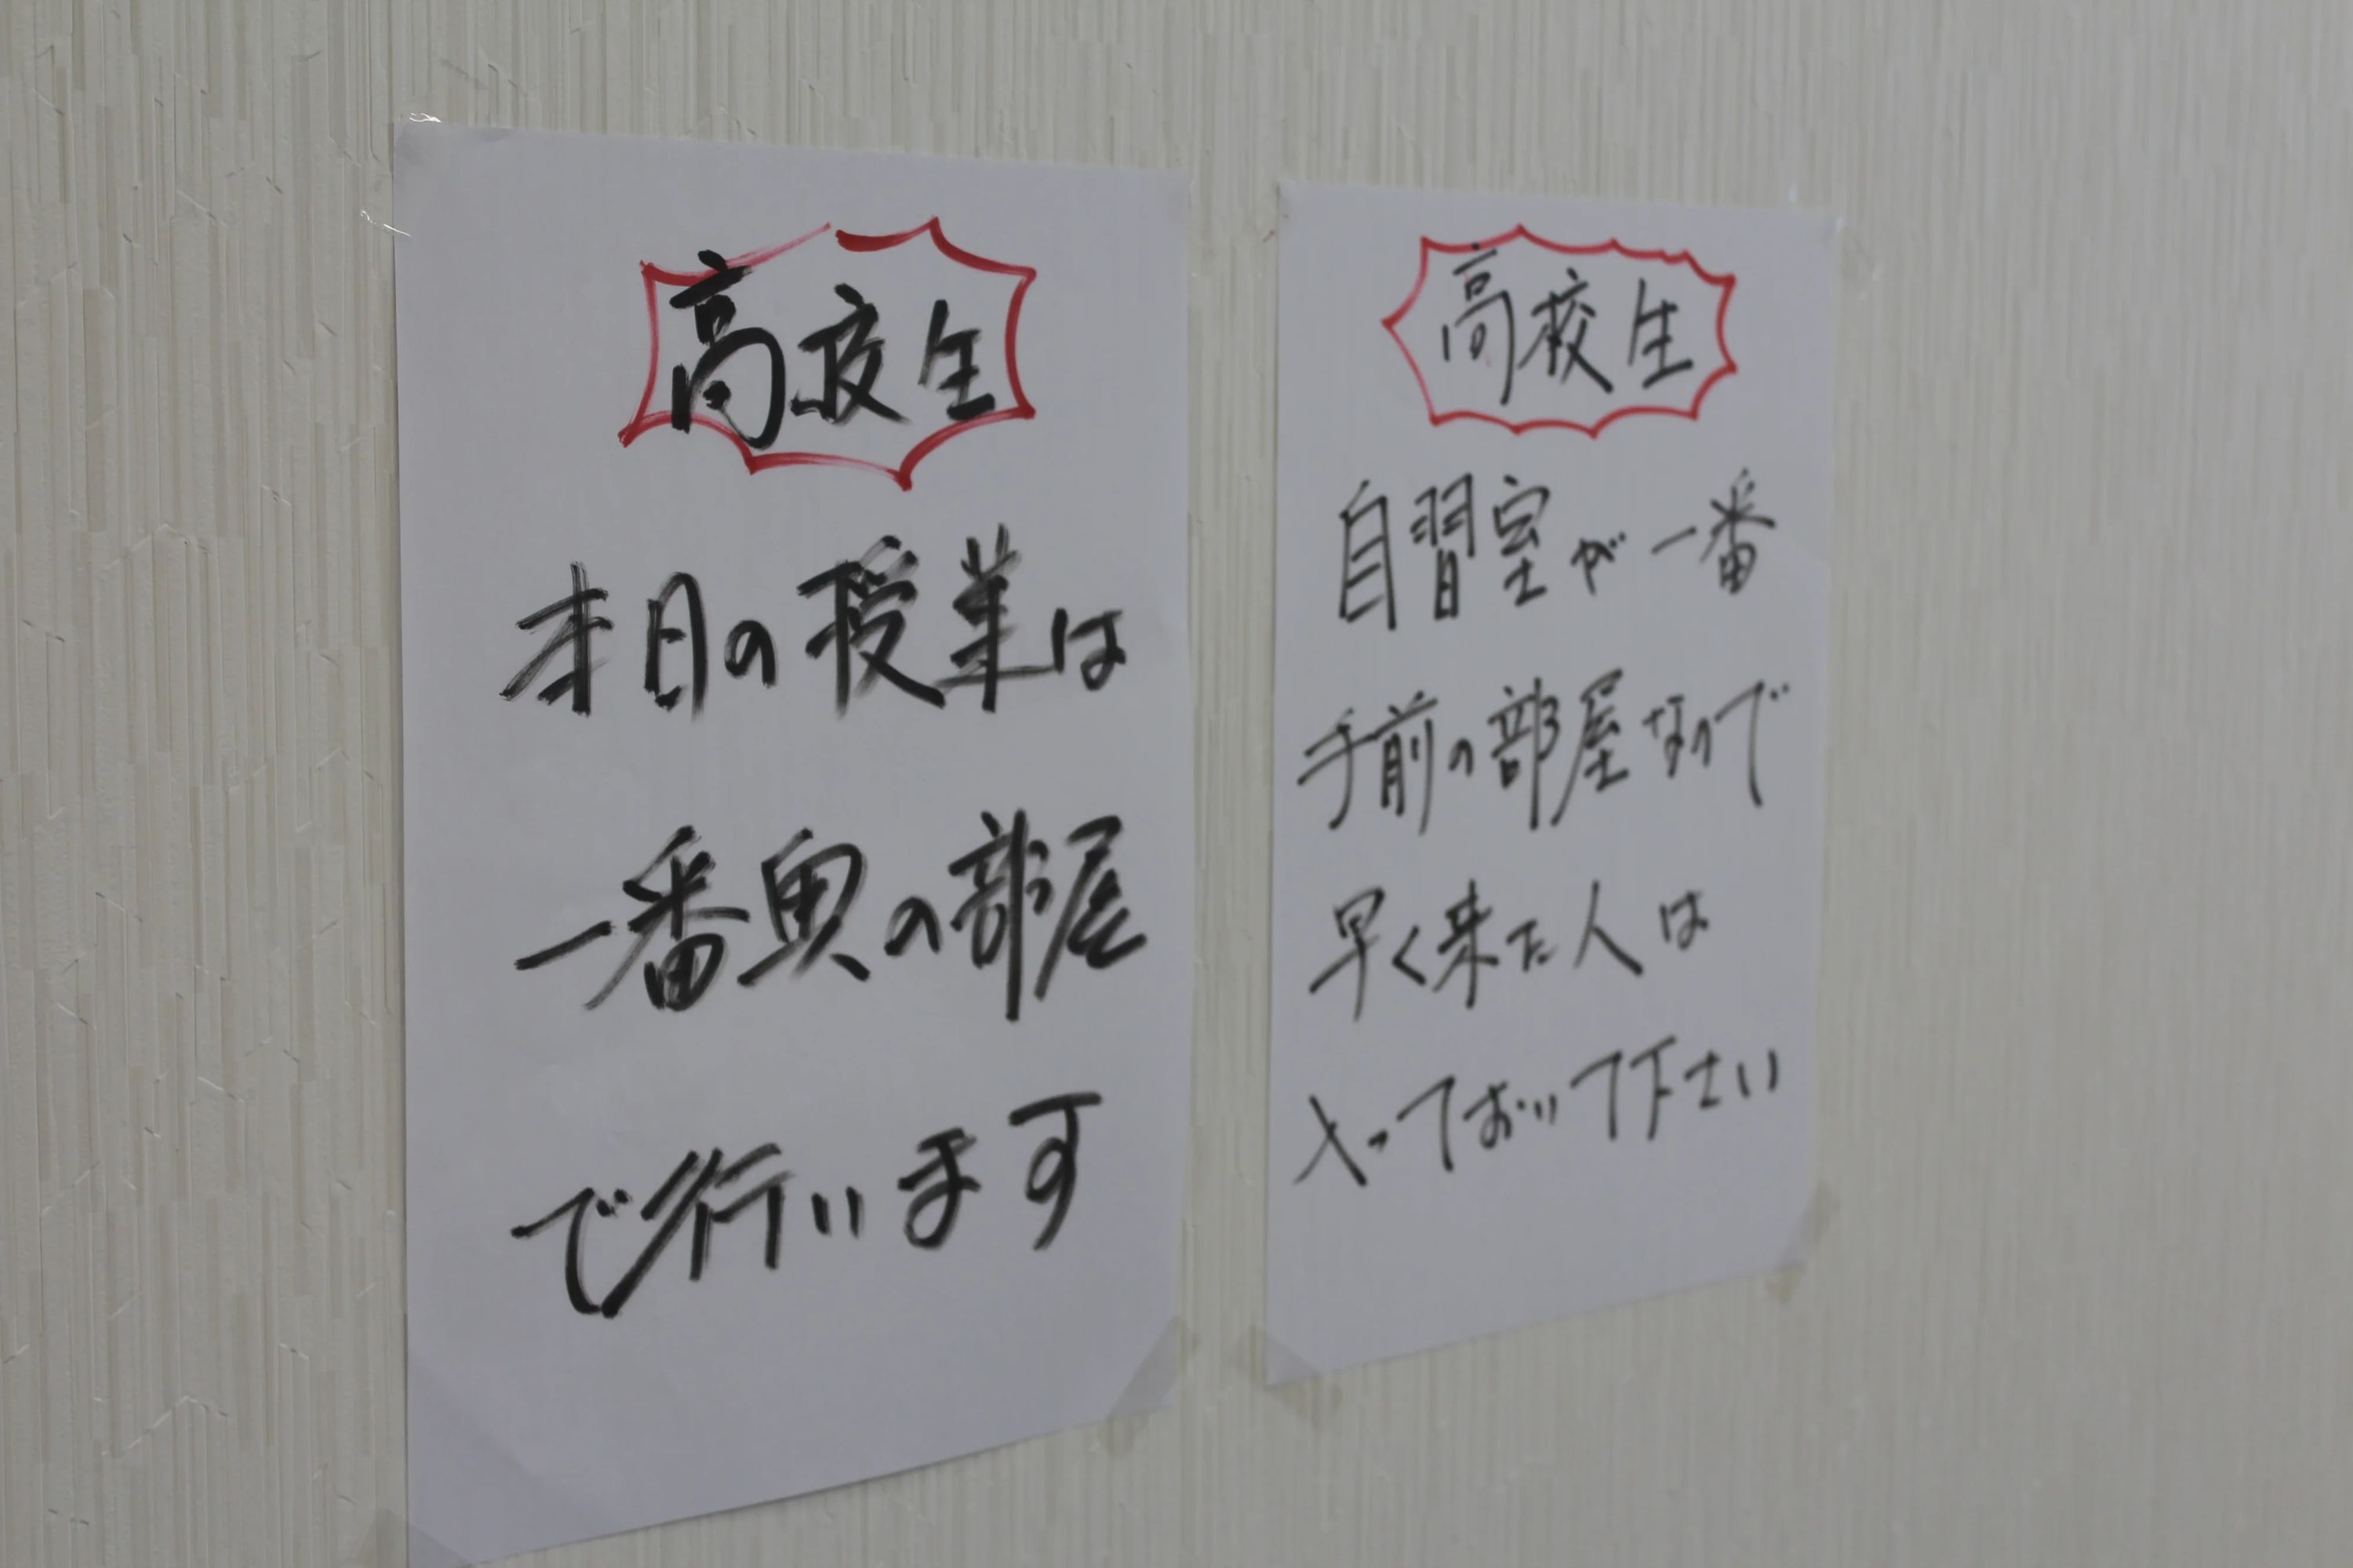 高校生
本日の授業は
一番奥の部屋
で行います
高校生
自習室が一番
手前の部屋なので
早く来た人は
入っておいて下さい